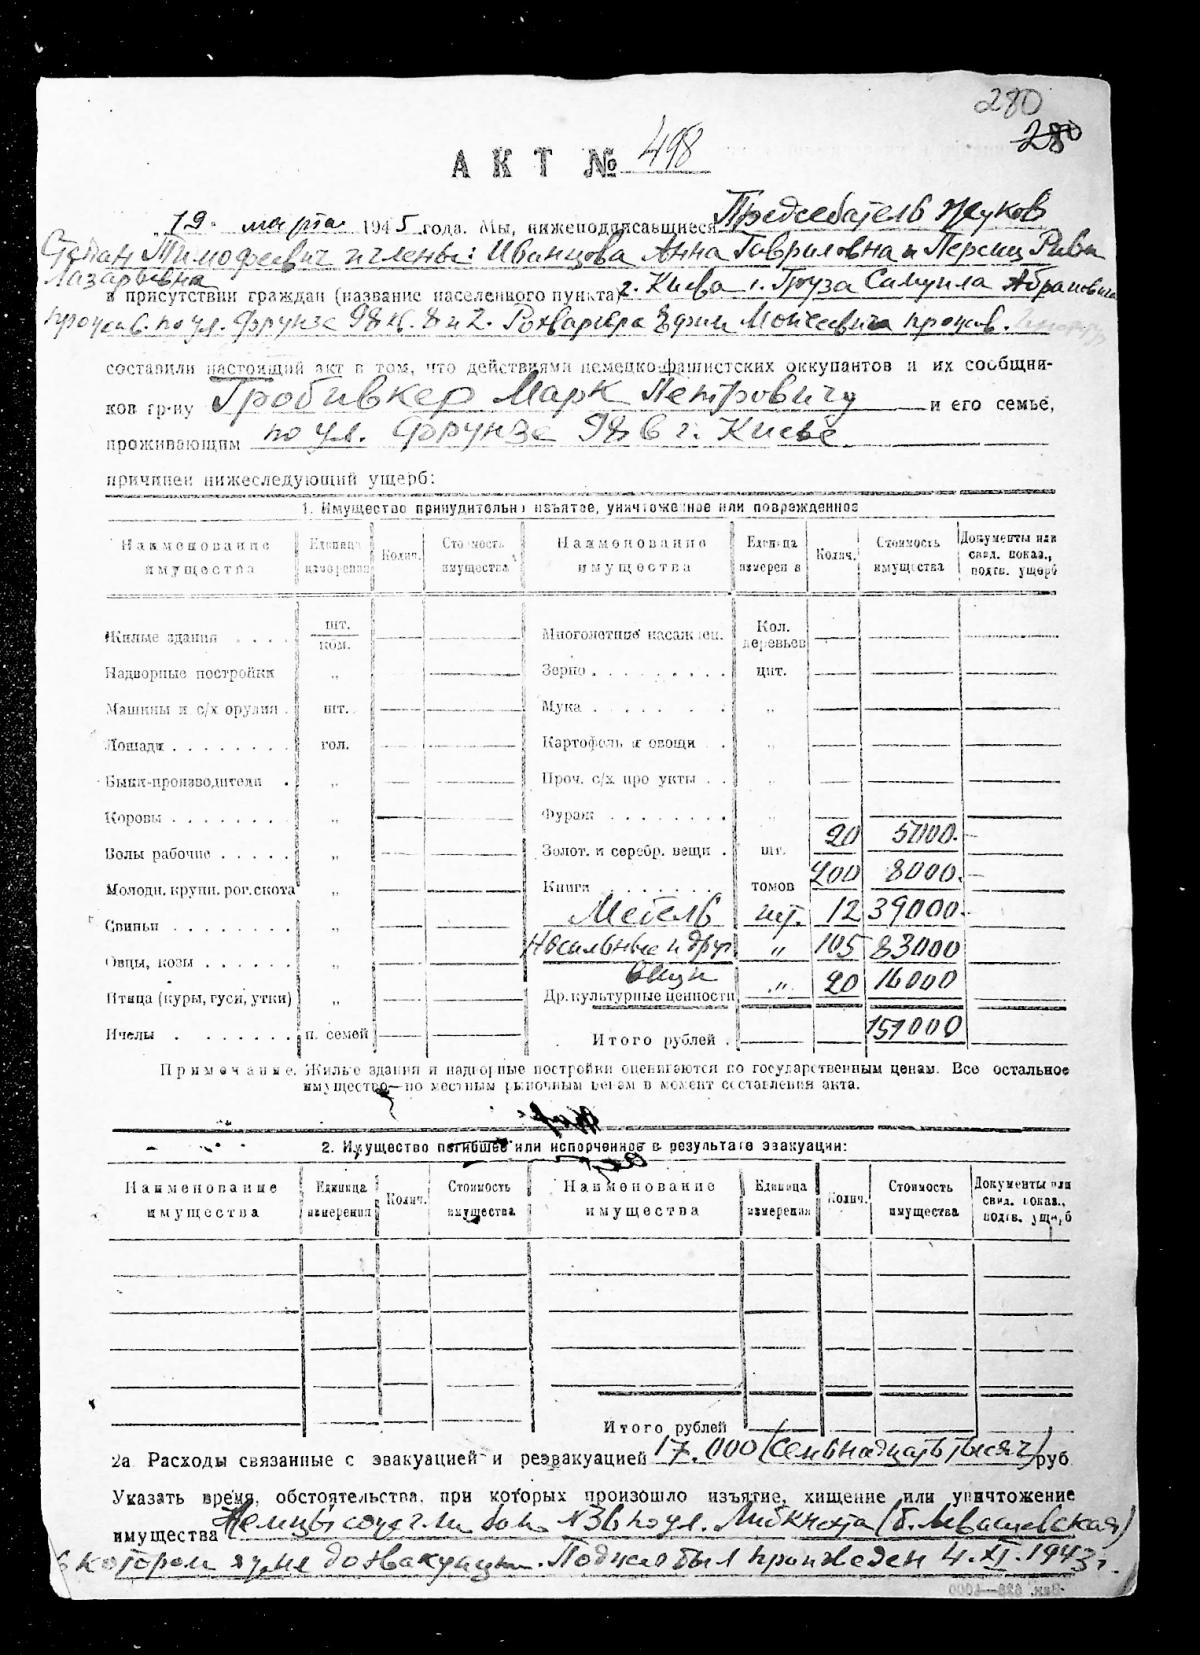 280
280
АКТ № 498
„19" марта 1945 года. Мы, нижеподписавшиеся Председатель Жуков
Степан Тимофеевич и члены: Иванцова Анна Гавриловна и Персиц Рива
Лазаревна
в присутствии граждан (название населенного пункта) г. Киева 1. Груза Самуила Абрамовича
прожив. по ул. Фрунзе 98 кв. 8 и 2. Ефим Моисеевича прожив.
составили настоящий акт в том, что действиями немецко-фашистских оккупантов и их сообщни-
ков гр-ну Гробивкер Марк Петровичу и его семье,
проживающим по ул. Фрунзе 98 в г. Киеве
причинен нижеследующий ущерб:
1. Имущество принудительно изъятое, уничтоженное или поврежденное
Наименование имущества Единица измерения Колич. Стоимость имущества Наименование имущества Единица измерен я Колич. Стоимость имущества Документы или свид. показ., подтв. ущерб
Жилые здания . . . . шт. ком. Многолетние насажден. Кол. деревьев
Надворные постройки „ Зерно . . . . . . . . цнт.
Машины и с/х орудия . шт. Мука . . . . . . . „
Лошади . . . . . . . . гол. Картофель и овощи . . „
Быки-производители . „ Проч. с/х про укты . . „
Коровы . . . . . . . . „ Фураж . . . . . . . . „
Волы рабочие . . . . . „ Золот. и серебр. вещи . шт. 20 5000.-
Молодн. крупн. рог. скота „ Книги . . . . . . . томов 200 8000.-
Свиньи . . . . . . . . „ Мебель шт. 12 39000.-
Овцы, козы . . . . . . „ Носильные и друг. вещи „ 105 83000
Птица (куры, гуси, утки) „ Др. культурные ценности „ 20 16000
Пчелы . . . . . . . п. семей Итого рублей . 151000
Примечание. Жилые здания и надворные постройки оцениваются по государственным ценам. Все остальное
имущество—по местным рыночным ценам в момент составления акта.
2. Имущество погибшее или испорченное в результате эвакуации:
Наименование имущества Единица измерения Колич. Стоимость имущества Наименование имущества Единица измерения Колич. Стоимость имущества Документы или свид. показ., подтв. ущерб
Итого рублей
2а Расходы связанные с эвакуацией и реэвакуацией 17.000 (семьнадцать тысяч) руб.
Указать время, обстоятельства, при которых произошло изъятие, хищение или уничтожение
имущества Немцы сожгли дом № 36 по ул. Либкнехта (б. Левашевская)
в котором я до эвакуации. Поджог был произведен 4.XI.1943 г.